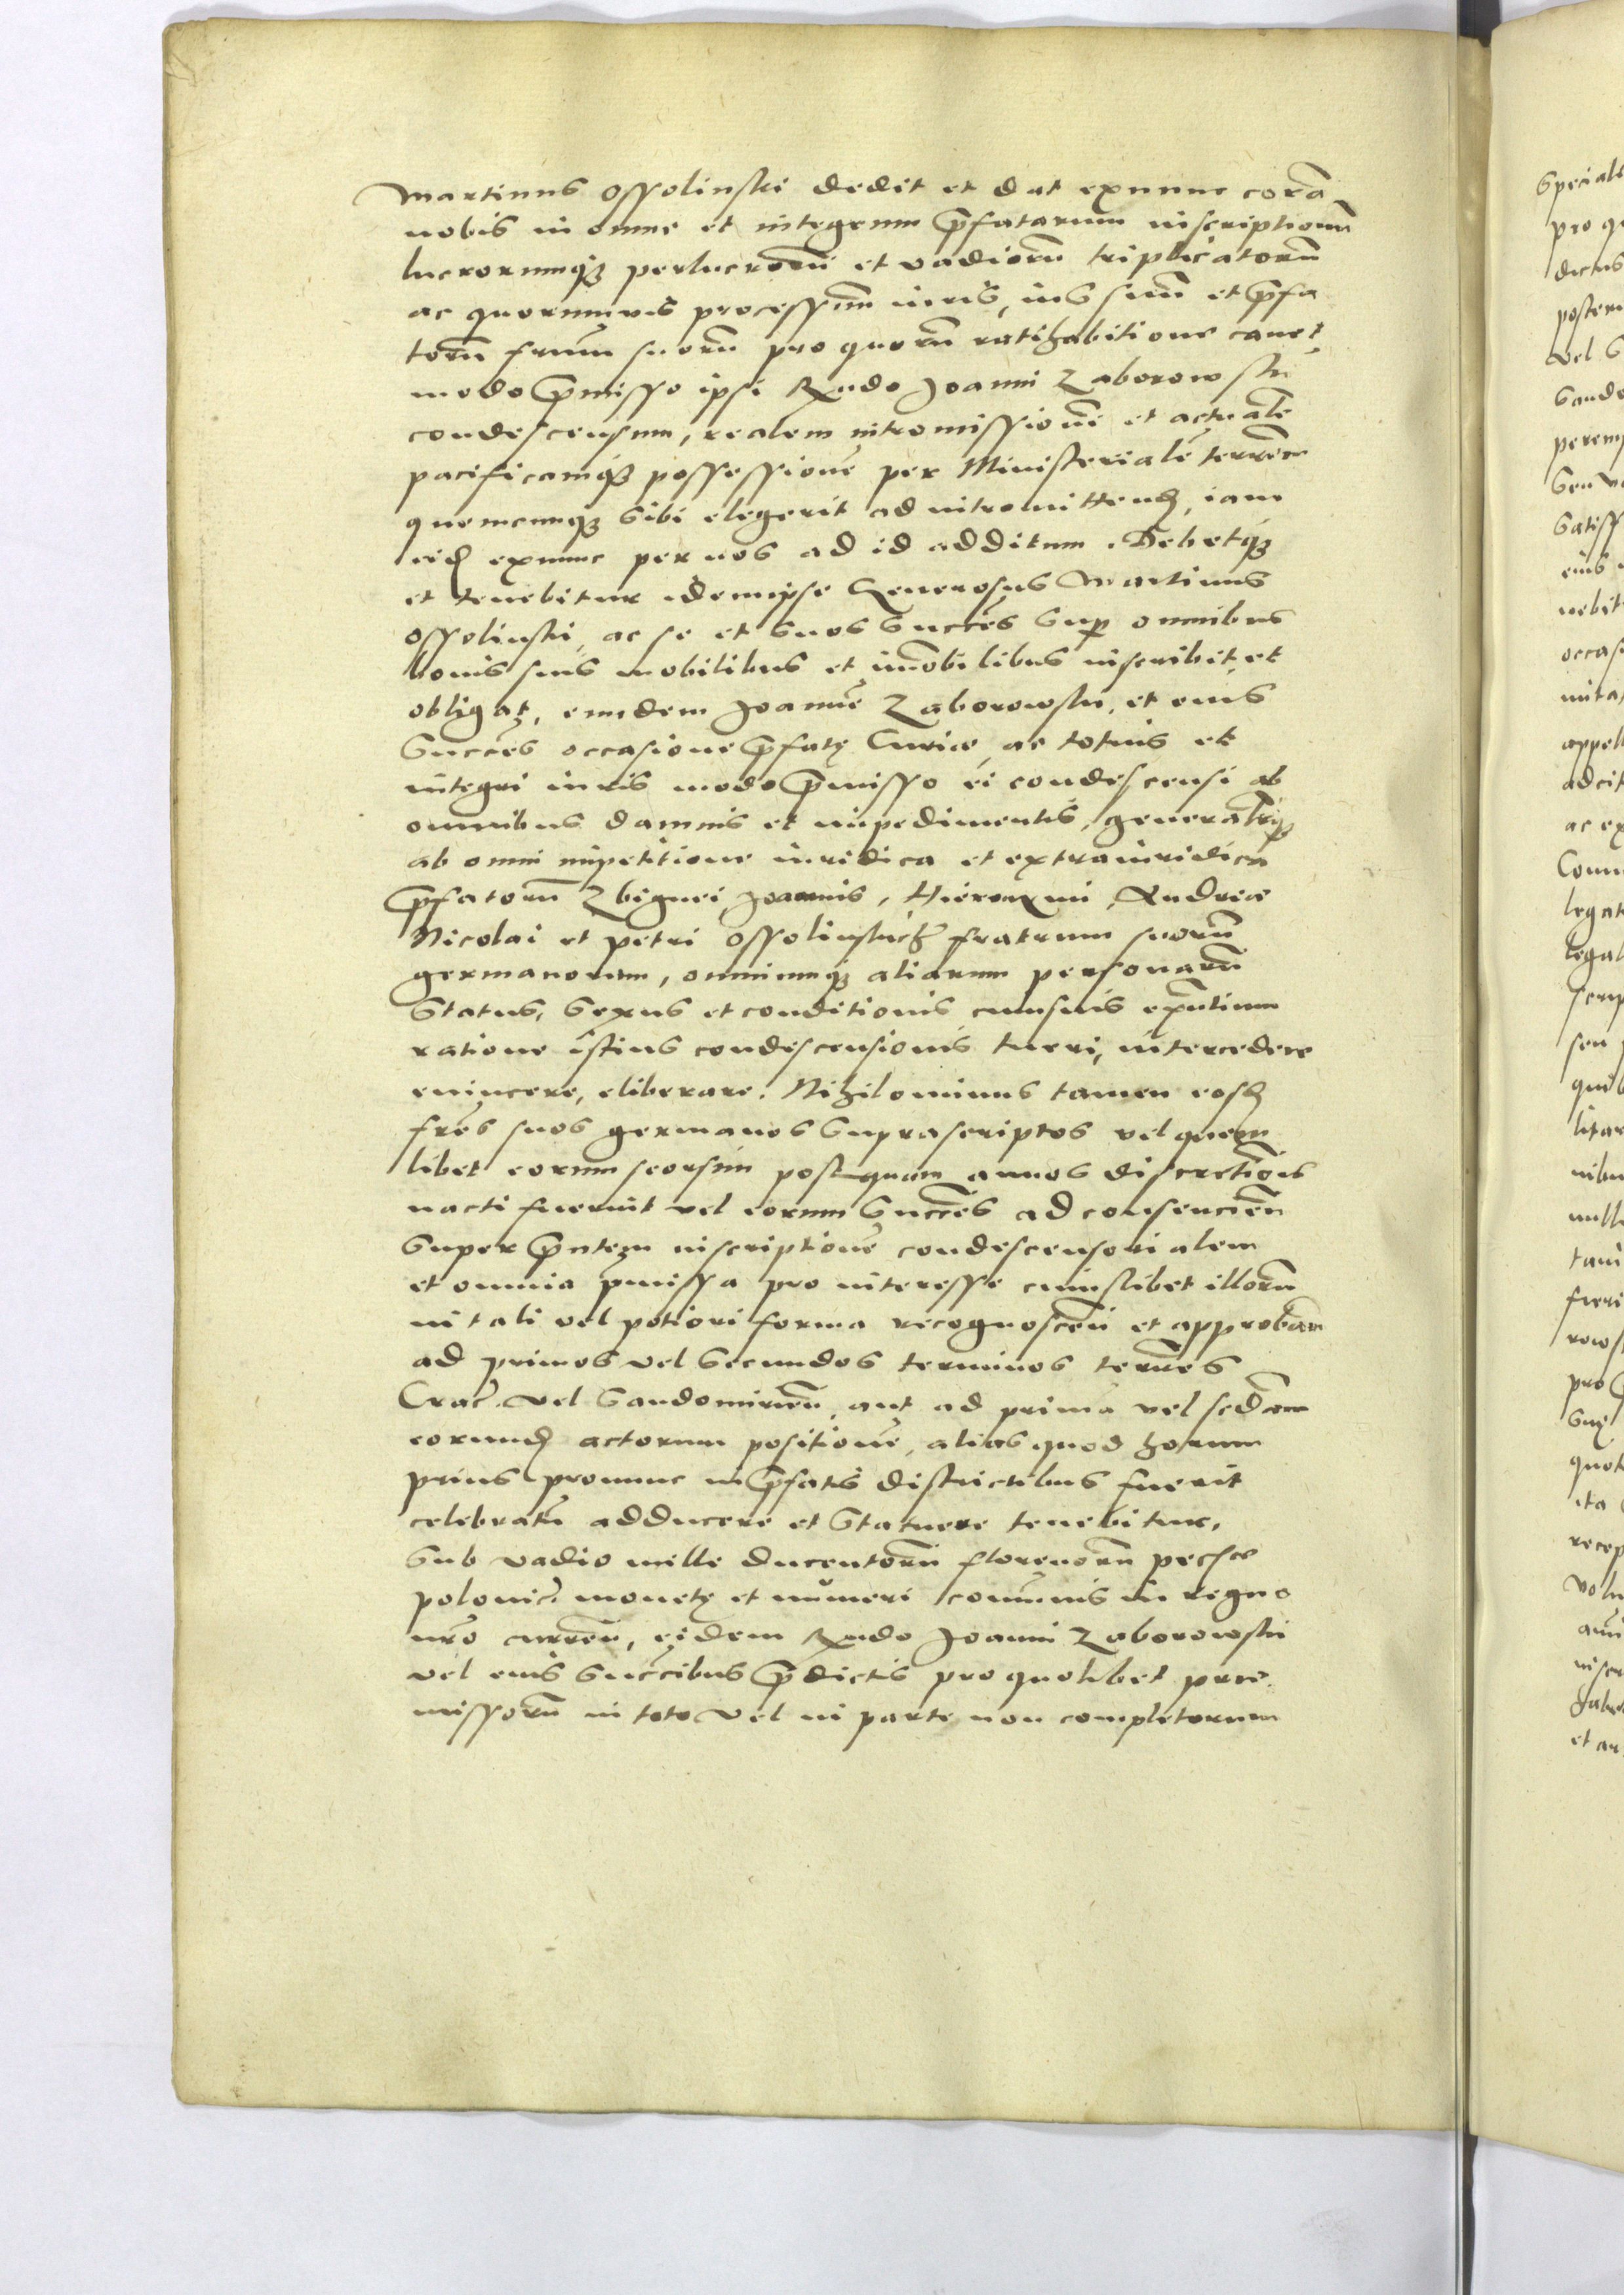 Martinus Ossolinski dedit et dat exnunc corã
nobis in omne et integrum p̃fatarum inscriptionũ
lucrorumqꝫ perlucrorũ et vadiorũ triplicatorũ
ac quorumvis processum iuris, ius suũ et p̃fa
torũ frum̃ suorũ pro quorũ ratihabitione cavet
modo p̃misso ipsi Rñdo Joanni Zaborowski
condescensum, realem intromissionẽ et actualẽ
pacificamqꝫ possessionẽ per Ministerialẽ terrẽm
quemcunqꝫ sibi elegerit ad intromittenđ, iam
eiđ exnunc per nos ad id additum. Debetqꝫ
et tenebitur idemipse Generosus Martinus
Ossolinski, ac se et suos succẽs sup̱ omnibus
bonis suis mobilibus et im̃obilibus inscribit, et
obligat, eundem Joannẽ Zaborowski, et eius
succẽs occasione p̃fatę Curiæ, ac totius et
integri iuris modo p̃misso ei condescensi ab
omnibus damnis et impedimentis, generalr̃qꝫ
ab omni impetitione iuridica et extraiuridica
p̃fatorũ Zbignei, Joannis, Hieronymi, Andreæ
Nicolai et Petri Ossolinskich fratrum suorũ
germanorum, omniumqꝫ aliarum personarũ
status, sexus et conditionis cuiusvis exñtium
ratione istius condescensionis tueri, intercedere
evincere, eliberare. Nihilominus tamen eosđ
frẽs suos germanos suprascriptos vel quem
libet eorum seorsim postquam annos discretiõis
nacti fuerint vel eorum succẽs ad consencień
super p̃ntem inscriptionẽ condescensorialem
et omnia p̃missa pro interesse cuiuslibet illorũ
in tali vel potiori forma recognoscẽn et approbãn
ad primos vel secundos terminos terrẽs
Crac̃. vel Sandomiriẽn, aut ad primã vel secđam
eorunđ actorum positionẽ, alias quod horum
prius pronunc in p̃fatis districtibus fuerit
celebratũ adducere et statuere tenebitur,
sub vadio mille ducentorũ florenorũ pecuẽ
polonic̃. monetę et numeri com̃unis in regno
nr̃o currẽn, eidem Rñdo Joanni Zaborowski
vel eius succ̃ibus p̃dictis pro quolibet præ
missorũ in toto vel in parte non completorum